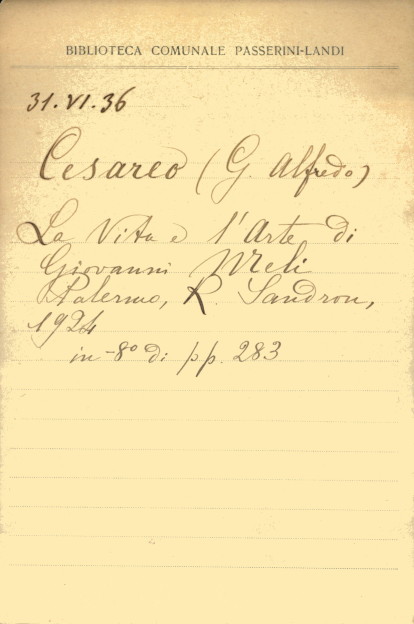 BIBLIOTECA COMUNALE PASSERINI-LANDI
31.VI.36
Cesareo (G. Alfredo)
La Vita e l'Arte di
Giovanni Meli
Palermo, R. Sandron,
1924
in-8º di pp. 283